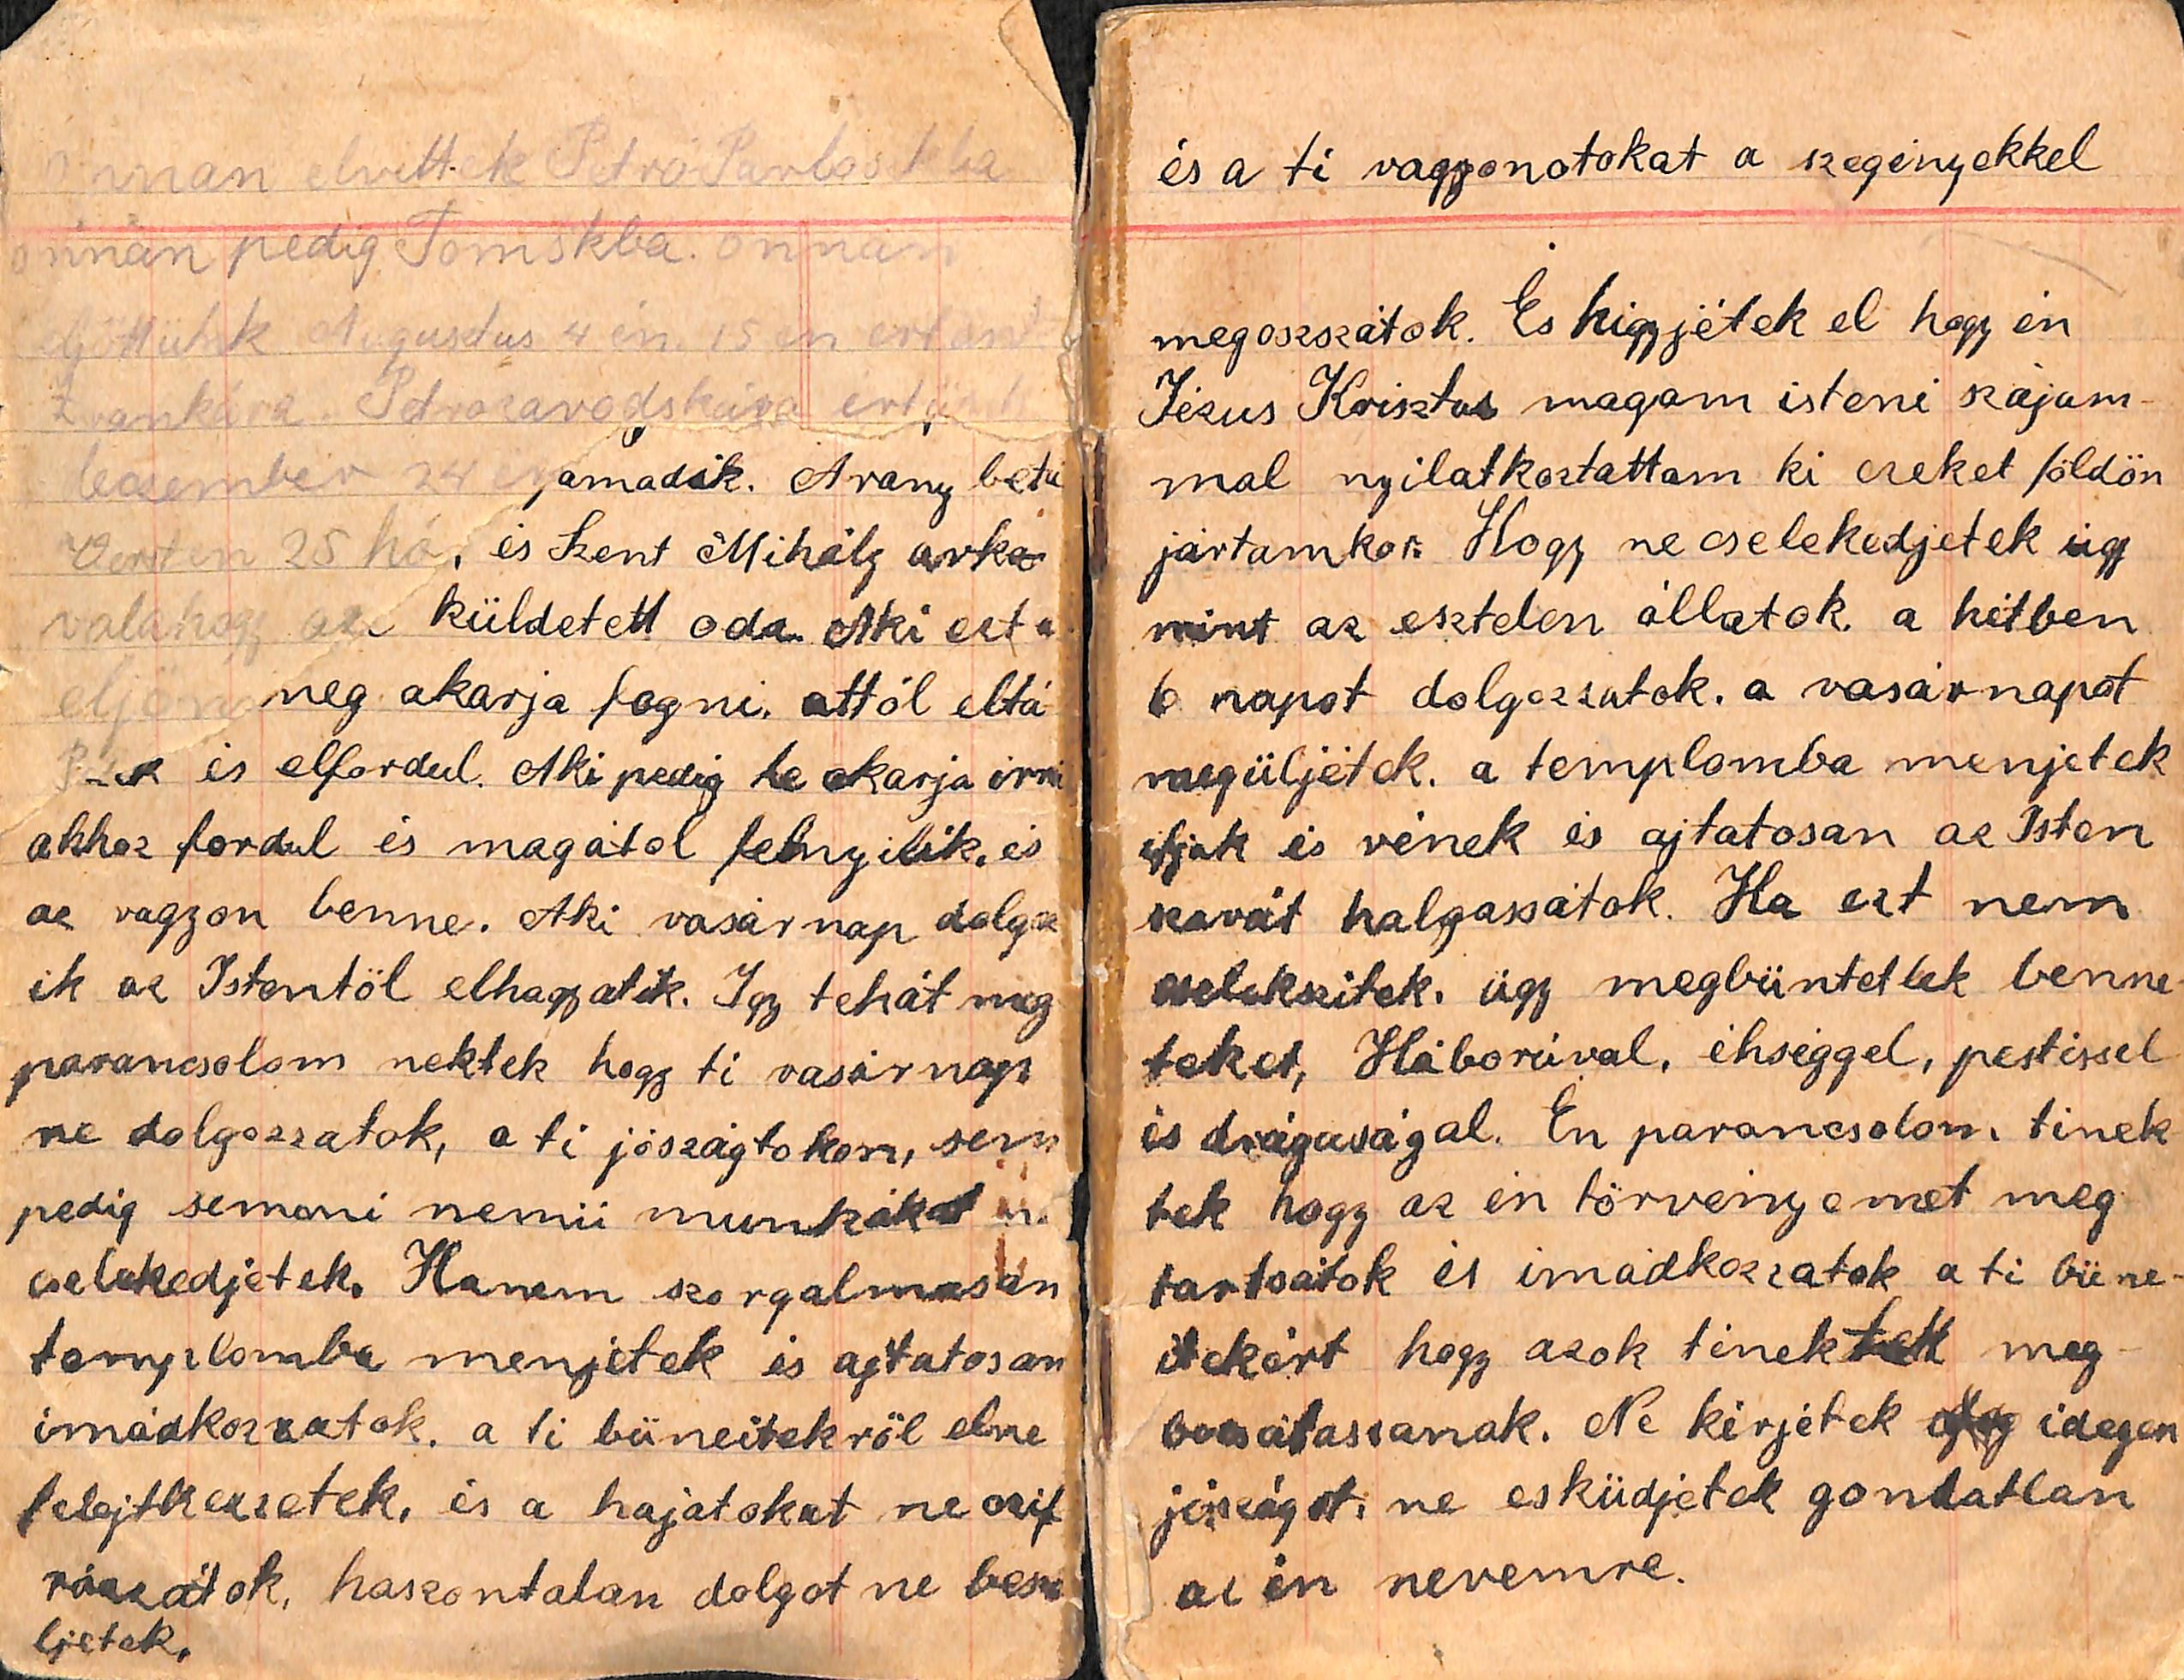 onnan elvittek PetroPavloskba
onnan pedig Tomskba. onnan
eljöttünk Augusdus 4 én. 15 én
Petrozavodskára értünk
24
25 hó
valahogy
eljön
amadik. Arany betü
és Szent Mihály arka
küldetett oda. Aki ezt a
meg akarja fogni. attól eltá
és elfordul. Aki pedig le akarja irni
ahhoz fordul és magától felnyilik. és
az vagyon benne. Aki vasárnap dolgoz
ik az Istentöl elhagyatik. Igy tehát meg
parancsolom nektek hogy ti vasárnap
ne dolgozzatok, a ti jószágtokon, sem
pedig semmi nemü munkákat
cselekedjetek. Hanem szorgalmasan
templomba menjetek és ajtatosan
imádkozzatok. a ti büneitekröl elne
felejtkezzetek. és a hajatokat ne czif
rázzátok, haszontalan dolgot ne besz
ljetek.
és a ti vagyonotokat a szegényekkel
megoszszátok. És higyjétek el hogy én
Jézus Krisztus magam isteni szájam-
mal nyilatkoztattam ki ezeket földön
jártamkor. Hogy ne cselekedjetek úgy
mint az esztelen állatok. a hétben
6 napot dolgozzatok. a vasárnapot
megüljétek. a templomba menjetek
ifjak és vének és ajtatosan az Isten
szavát halgassátok. Ha ezt nem
cselekszitek. úgy megbüntetlek benne-
teket, Háborúval, éhséggel, pestissel
és drágaságal. Én parancsolom tinek
tek hogy az én törvényemet meg
tartsátok és imádkozzatok a ti büne-
itekért hogy azok tinektek meg-
bocsátassanak. Ne kérjétek idegen
jószágot. ne esküdjetek gondatlan
az én nevemre.